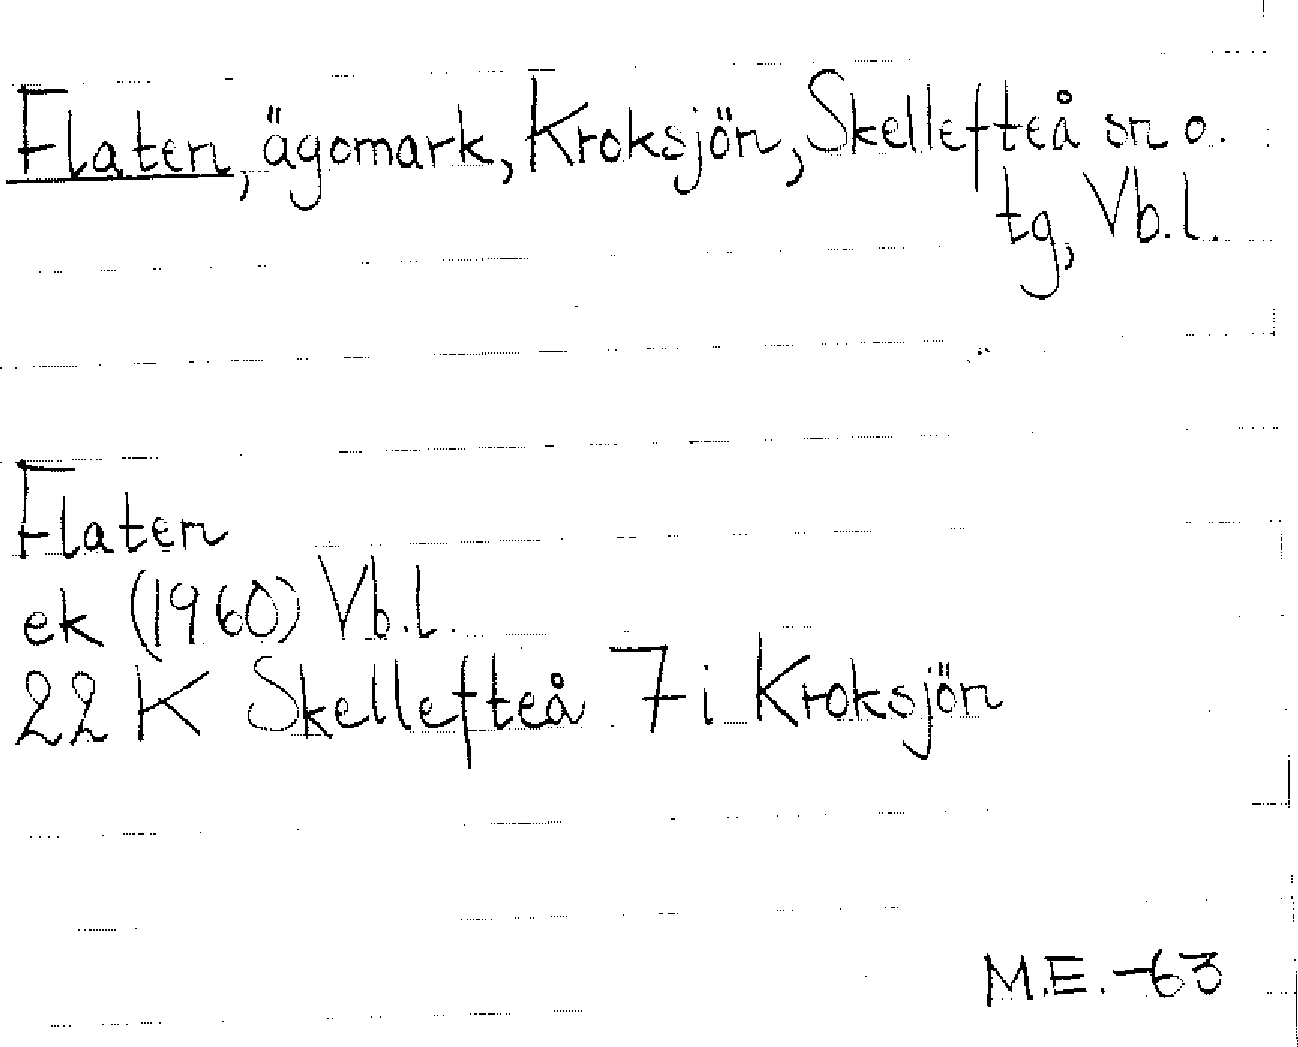 Flaten, ägomark, Kroksjön, Skellefteå sn o.
tg, Vb.l.
Flaten
ek (1960) Vb.l.
22 K Skellefteå 7 i Kroksjön
M.E. -63